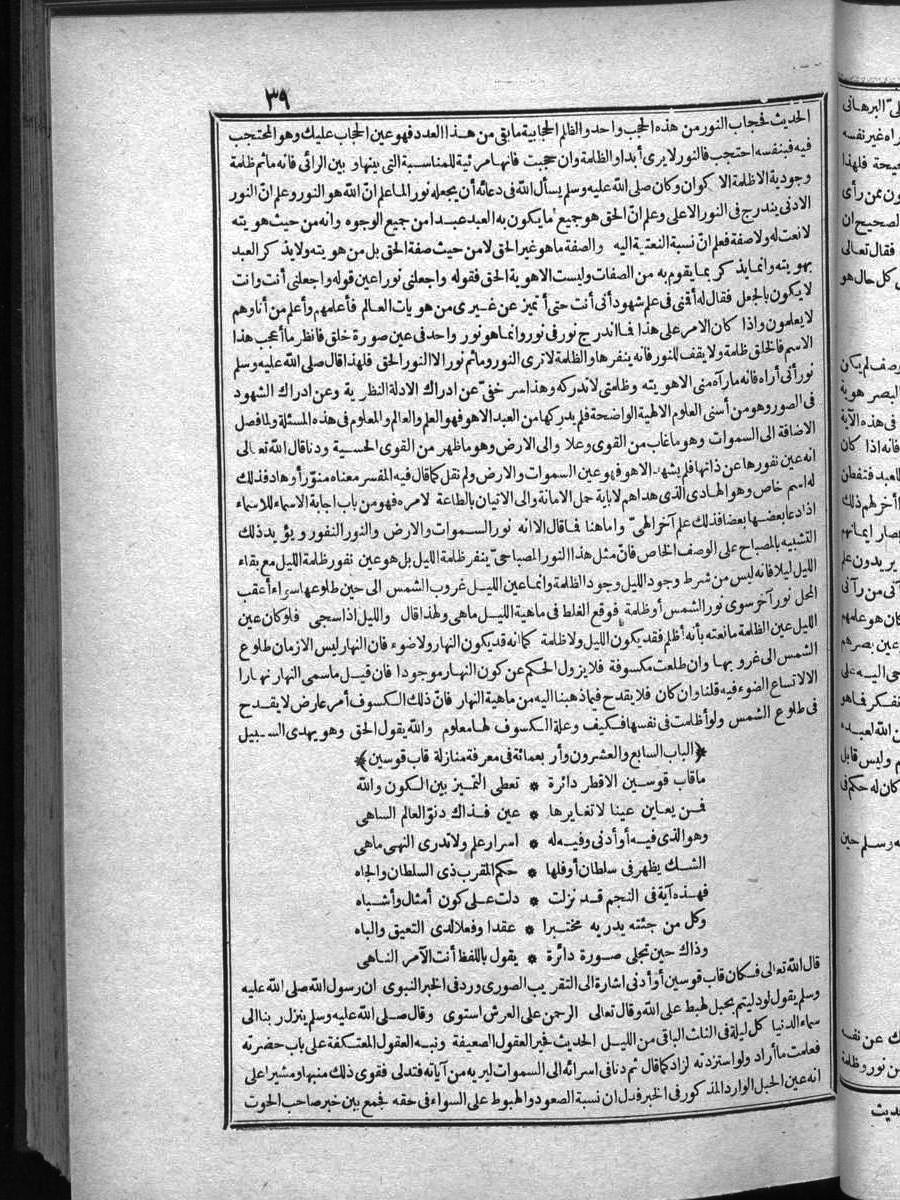 ٣٩
الحديث فحجاب النور من هذه الحجب واحد والظلم الحجابية ما بقى من هذا العدد فهو عين الحجاب عليك وهو المحتجب
فيه فبنفسه احتجب فالنور لا يرى أبدا والظلمة وان حجبت فانها مرئية للمناسبة التى بينها وبين الرائى فانه ما ثم ظلمة
وجودية الا ظلمة الاكوان وكان صلى الله عليه وسلم يسأل الله فى دعائه أن يجعله نورا لما علم انّ الله هو النور وعلم انّ النور
الادنى يندرج فى النور الاعلى وعلم انّ الحق هو جميع ما يكون به العبد عبدا من جميع الوجوه وانه من حيث هويته
لا نعت له ولا صفة فعلم انّ نسبة النعتية اليه والصفة ما هو غير الحق لا من حيث صفة الحق بل من هويته ولا يذكر العبد
بهويته وانما يذكر بما يقوم به من الصفات وليست الا هوية الحق فقوله واجعلنى نورا عين قوله واجعلنى أنت وانت
لا يكون بالجعل فقال له أقنى فى علم شهود أنى أنت حتى أتميز عن غيرى من هويات العالم فأعلمهم وأعلم من أنا وهم
لا يعلمون واذا كان الامر على هذا فما اندرج نور فى نور وانما هو نور واحد فى عين صورة خلق فانظر ما أعجب هذا
الاسم فالخلق ظلمة ولا يقف للنور فانه ينفرها والظلمة لا ترى النور وما ثم نور الا النور الحق فلهذا قال صلى الله عليه وسلم
نور أنى أراه فانه ما رآه منى الا هويته وظلمتى لا تدركه وهذا سر خفىّ عن ادراك الادلة النظرية وعن ادراك الشهود
فى الصور وهو من أسنى العلوم الالهية الواضحة فلم يدركها من العبد الا هو فهو العلم والعالم والمعلوم فى هذه المسئلة ولما فصل
الاضافة الى السموات وهو ما غاب من القوى وعلا والى الارض وهو ما ظهر من القوى الحسية ودنا قال الله تعالى
انه عين نفورها عن ذاتها فلم يشهد الا هو فهو عين السموات والارض ولم نقل كما قال فيه المفسر معناه منوّر أوهاد فذلك
له اسم خاص وهو الهادى الذى هداهم لابانة حمل الامانة والى الاتيان بالطاعة لامره فهو من باب اجابة الاسماء للاسماء
اذا دعا بعضها بعضا فذلك علم آخر الهىّ وأما هنا فما قال الا انه نور السموات والارض والنور النفور ويؤيد ذلك
التشبيه بالمصباح على الوصف الخاص فانّ مثل هذا النور المصباحىّ ينفر ظلمة الليل بل هو عين نفور ظلمة الليل مع بقاء
الليل ليلا فانه ليس من شرط وجود الليل وجود الظلمة وانما عين الليل غروب الشمس الى حين طلوعها سواء أعقب
المحل نور آخر سوى نور الشمس أو ظلمة فوقع الغلط فى ماهية الليل ما هى ولهذا قال والليل اذا سجى فلو كان عين
الليل عين الظلمة ما نعته بأنه أظلم فقد يكون الليل ولا ظلمة كما انه قد يكون النهار ولا ضوء فان النهار ليس الا زمان طلوع
الشمس الى غروبها وان طلعت مكسوفة فلا يزول الحكم عن كون النهار موجودا فان قيل ما سمى النهار نهارا
الا لاتساع الضوء فيه قلنا وان كان فلا يقدح فيما ذهبنا اليه من ماهية النهار فانّ ذلك الكسوف أمر عارض لا يقدح
فى طلوع الشمس ولو أظلمت فى نفسها فكيف وعلة الكسوف لها معلوم والله يقول الحق وهو يهدى السبيل
﴿الباب السابع والعشرون وأربعمائة فى معرفة منازلة قاب قوسين﴾
ما قاب قوسين الا قطر دائرة * تعطى التميز بين الكون والله
فمن يعاين عينا لا تغايرها * عين فذاك دنوّ العالم الساهى
وهو الذى فيه أو أدنى وفيه له * اسرار علم ولا تدرى النهى ما هى
الشك يظهر فى سلطان أو فلها * حكم المقرب ذى السلطان والجاه
فهذه آية فى النجم قد نزلت * دلت على كون أمثال وأشباه
وكل من جئته يدريه مختبرا * عقدا وفعلا لدى التعيق والباه
وذاك حين تجلى صورة دائرة * يقول باللفظ أنت الآمر الناهى
قال الله تعالى فكان قاب قوسين أو أدنى اشارة الى التقريب الصورى ورد فى الخبر النبوى ان رسول الله صلى الله عليه
وسلم يقول لو دليتم بحبل لهبط على الله وقال تعالى الرحمن على العرش استوى وقال صلى الله عليه وسلم ينزل ربنا الى
سماء الدنيا كل ليلة فى الثلث الباقى من الليل الحديث فحير العقول الضعيفة ونبه العقول المعتكفة على باب حضرته
فعلمت ما أراد ولو استزدته لزاد كما قال ثم دنا فى اسرائه الى السموات ليريه من آياته فتدلى فقوى ذلك منبها ومشيرا على
انه عين الحبل الوارد المذكور فى الخبر فدل ان نسبة الصعود والهبوط على السواء فى حقه فجمع بين خبر صاحب الحوت